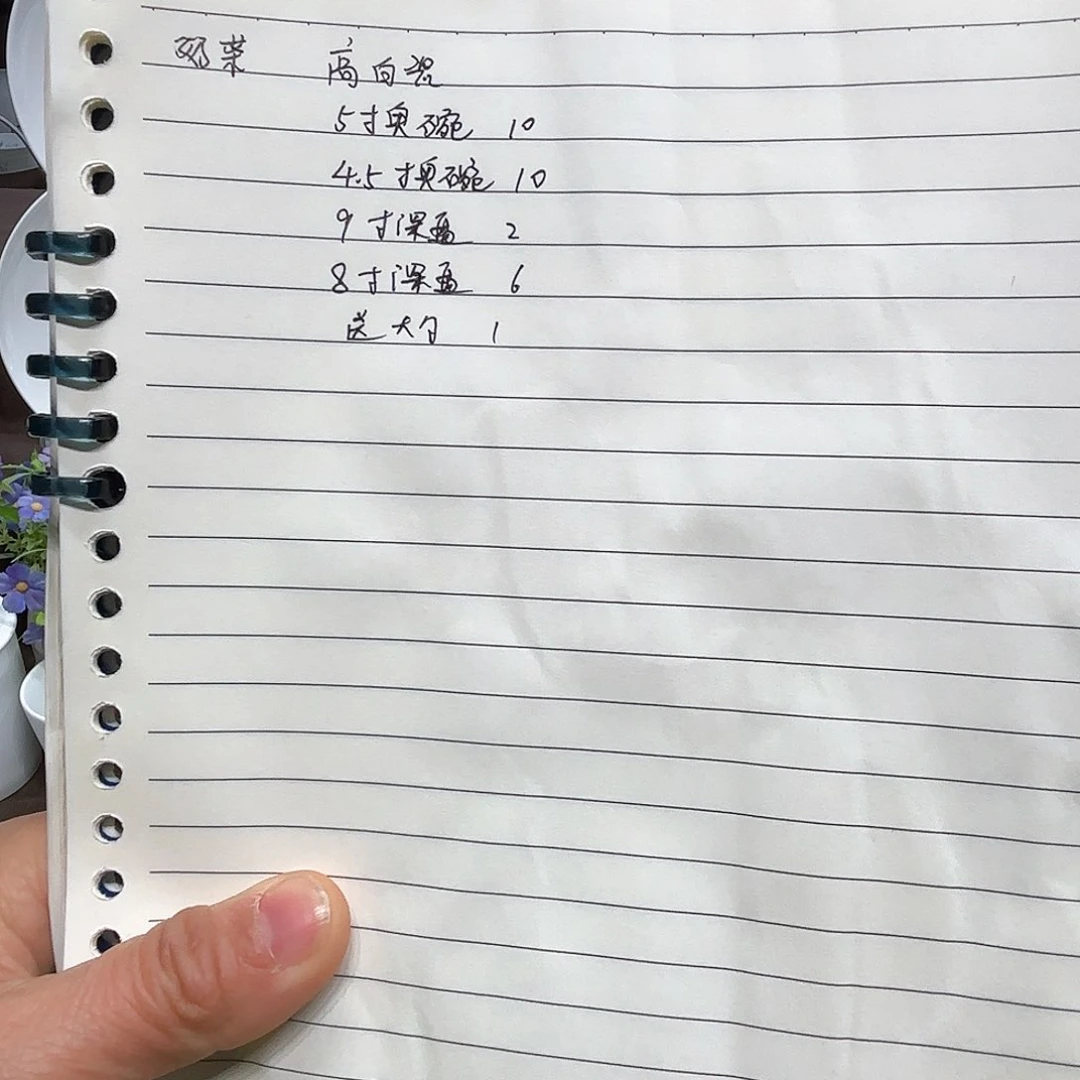 邓荣 高白瓷
5寸奥碗 10
4.5寸奥碗 10
9寸深盘 2
8寸深盘 6
送大勺 1